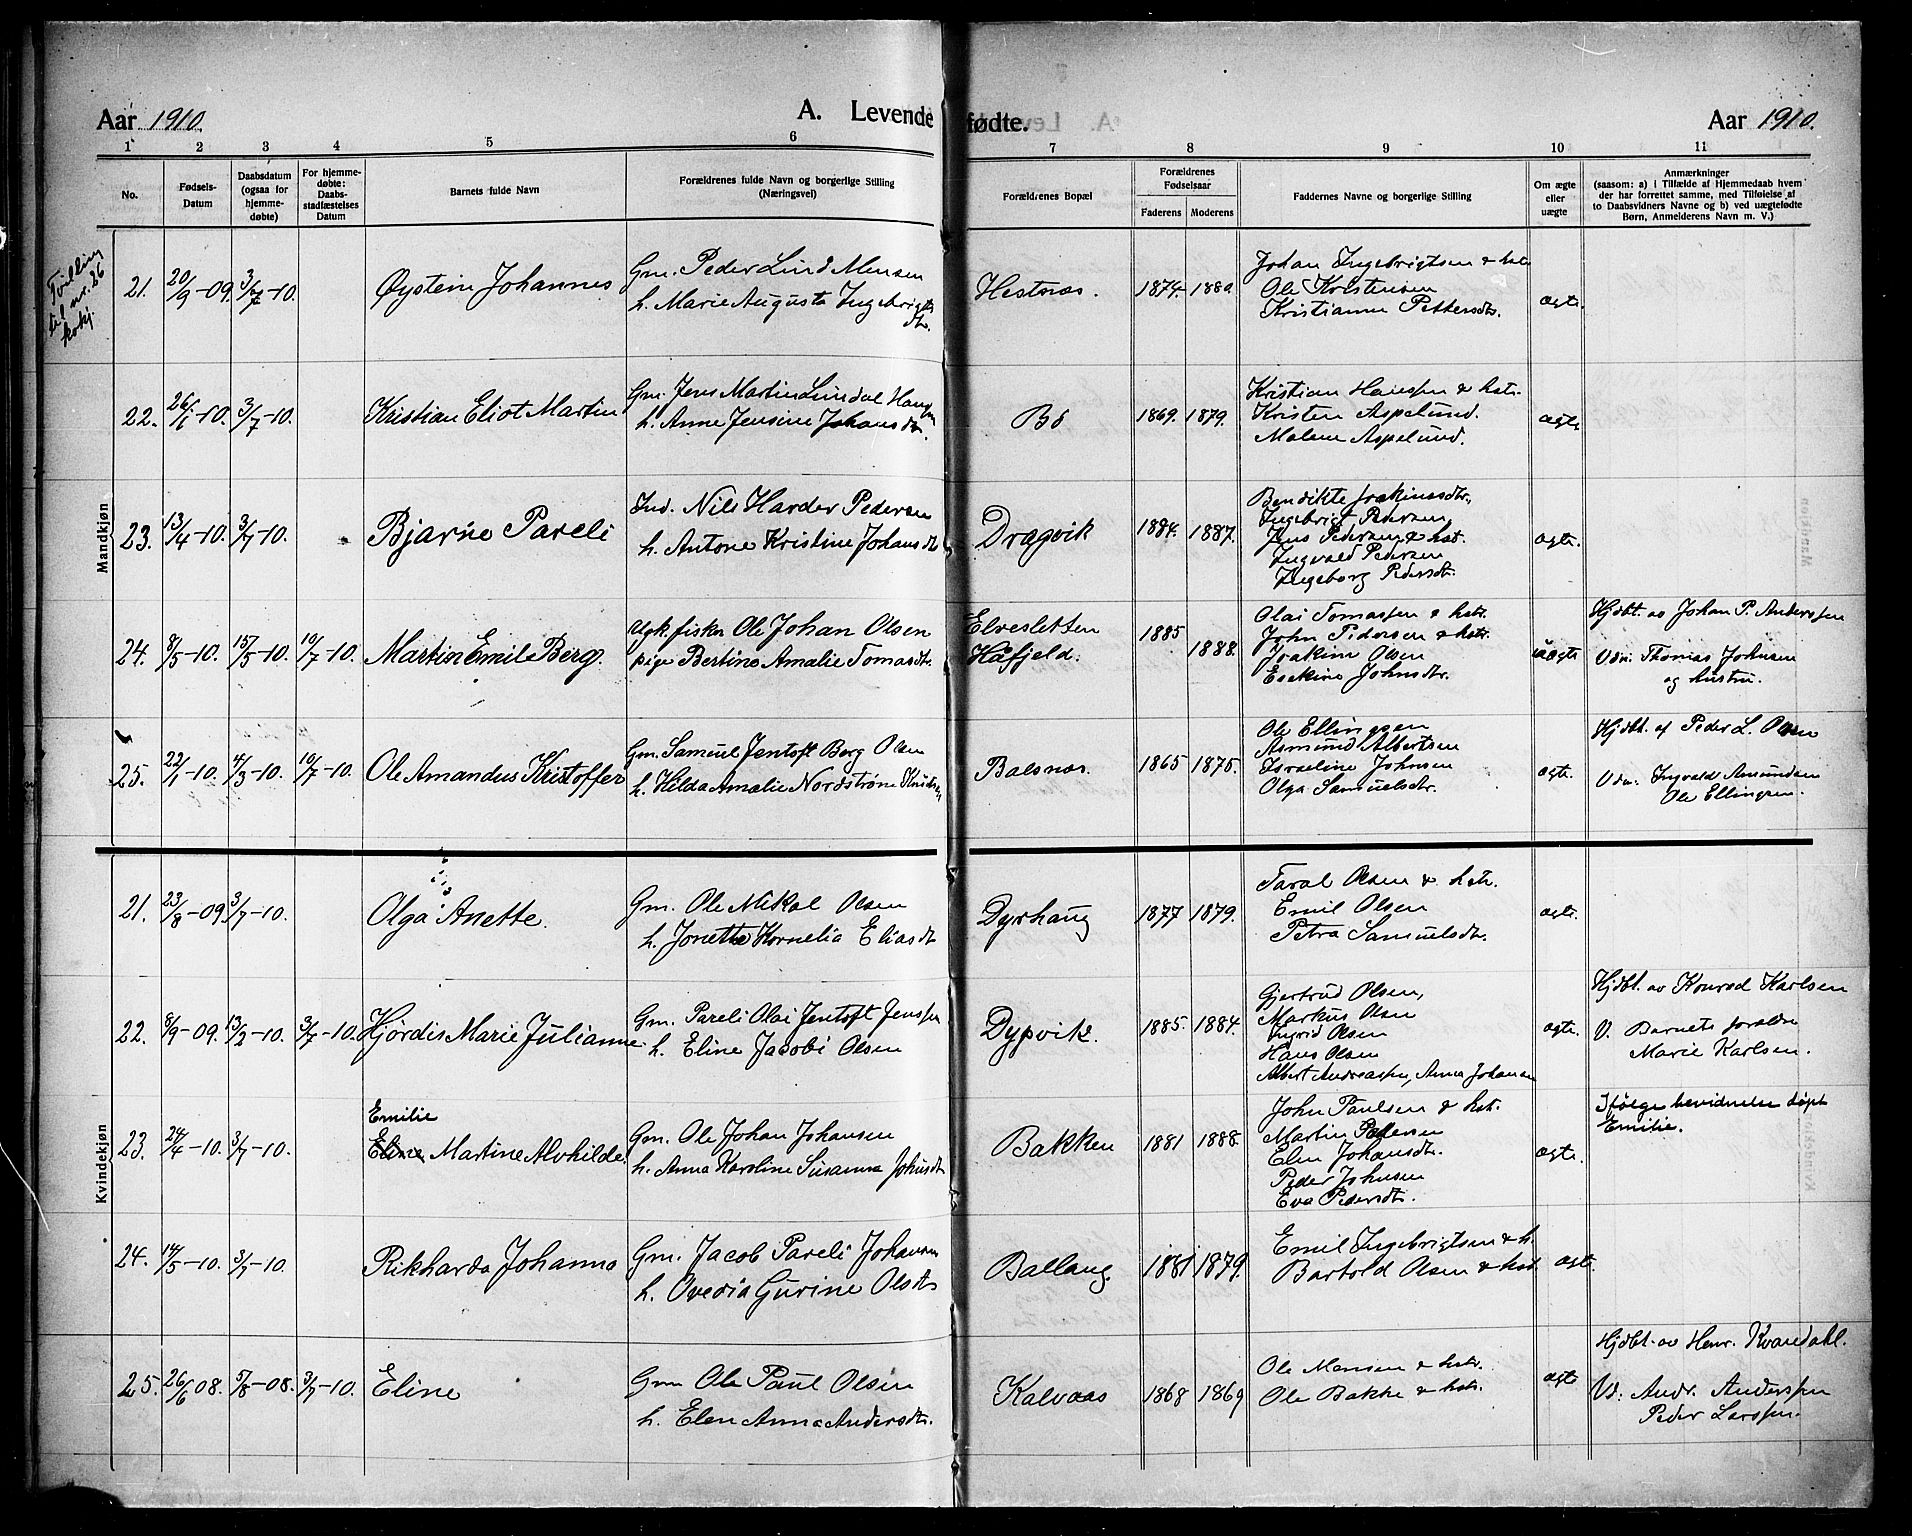 Aar 1910.
A. Levende
fødte.
Aar 1910.
1 2 3 4 5 6 7 8 9 10 11
No.
Fødsels-
Datum
Daabsdatum
(ogsaa for
hjemme-
døbte)
For hjemme-
døbte:
Daabs-
stadfæstelses
Datum
Barnets fulde Navn
Forældrenes fulde Navn og borgerlige Stilling
(Næringsvei)
Forældrenes Bopæl
Forældrenes
Fødselsaar
Faderens Moderens
Faddernes Navne og borgerlige Stilling
Om ægte
eller
uægte
Anmærkninger
(saasom: a) i Tilfælde af Hjemmedaab hvem
der har forrettet samme, med Tilføielse af
to Daabsvidners Navne og b) ved uægtefødte
Børn, Anmelderens Navn m. V.)
Mandkjøn
Tvilling
til nr. 26
kvkj.
21. 20/9-09. 3/7-10. Øystein Johannes
Gm. Peder Lind Monsen
h. Marie Augusta Ingebrigts
dtr.
Hestnæs. 1874. 1880.
Johan Ingebrigtsen & hst.
Ole Kristensen
Kristianna Pettersdtr.
ægte.
22. 26/1-10. 3/7-10. Kristian Eliot Martin
Gm. Jens Martin Lindal Hansen
h. Anne Jensine Johansdtr.
Bö 1869. 1879.
Kristian Hansen & hstr.
Kristen Aspelund.
Malene Aspelund.
ægte
23. 13/4-10. 3/7-10. Bjarne Pareli
Ind. Nils Harder Pedersen
h. Antone Kristine Johansdtr
Dragvik 1884. 1887.
Bendikte Joakimsdtr.,
Ingebrigt Pedersen
Jens Pedersen & hst.
Ingvald Pedersen
Ingeborg Pedersdtr.
ægte.
24. 8/5-10. 15/5-10. 10/7-10. Martin Emil Berg.
Ugk. fiskr Ole Johan Olsen
pige Bertine Amalie Tomasdtr.
Elvesletten
Håfjeld.
1885 1888.
Olai Tomassen & hstr.
John Pedersen & hstr.
Joakim Olsen
Esekine Johnsdtr.
uægte
Hjdbt. av Johan P. Anderssen
Vdn: Thomas Johnsen
og hustru.
25. 22/1-10. 4/3-10. 10/7-10. Ole Amandus Kristoffer
Gm. Samuel Jentoft Berg Olsen
h. Hilda Amalie Nordstrøm Knudsen
Balsnes. 1865 1875.
Ole Ellingsen
Asmund Albertsen
Israeline Johnsen
Olga Samuelsdtr.
ægte.
Hjdbt. af Peder L. Olsen
Vdn. Ingvald Amundsen
Ole Ellingsen.
Kvindekjøn
21. 23/8-09. 3/7-10. Olga Anette.
Gm. Ole Mikal Olsen
h. Jonette Kornelia Eliasdtr
Dyrhaug 1877 1879.
Taral Olsen & hstr.
Emil Olsen
Petra Samuelsdtr.
ægte.
22. 8/9-09. 13/2-10. 3/7-10. Hjørdis Marie Julianne
Gm. Pareli Olai Jentoft Jenssen
h. Eline Jacobi Olsen
Dypvik. 1885. 1884.
Gjertrud Olsen,
Markus Olsen
Ingrid Olsen
Hans Olsen
Albert Andreassen, Anna Johansen
ægte.
Hjdbt. av Konrad Karlsen
V. Barnets forældre
Marie Karlsen.
23. 24/4-10. 3/7-10. Emilie
Eline Martine Alvhilde.
Gm. Ole Johan Johansen
h. Anna Karoline Susanna Johnsdtr
Bakken 1881 1888.
John Paulsen & hst.
Martin Pedersen
Elen Johansdtr.
Peder Johnsen
Eva Pedersdtr.
ægte.
Ifølge bevidnelse døpt
Emilie.
24. 14/5-10. 3/7-10. Rikharda Johanna
Gm. Jacob Pareli Johansen
h. Ovedia Gurine Olsdtr
Ballang. 1881 1879.
Emil Ingebrigtsen & h.
Bartold Olsen & hst.
ægte.
25. 26/6 08. 5/8-08. 3/7-10. Eline
Gm Ole Paul Olsen
h. Elen Anna Andersdtr.
Kalvaas 1868 1869
Ole Monsen & hstr.
Ole Bakke & hstr.
ægte
Hjdbt. av Henr. Kvandahl.
Vd: Andr. Anderssen
Peder Larssen.